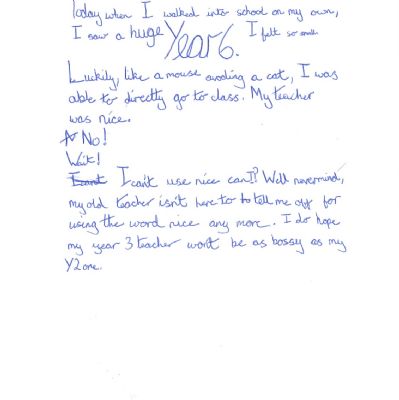 Today when I walked into school on my own,
I saw a huge Year 6. I felt so small
Luckily, like a mouse avoding a cat, I was
able to directly go to class. My teacher
was nice.
No!
Wait!
I cant I can't use nice can I? Well nevermind,
my old teacher isn't here to tell me off for
using the word nice any more. I do hope
my year 3 teacher won't be as bossy as my
Y2 one.